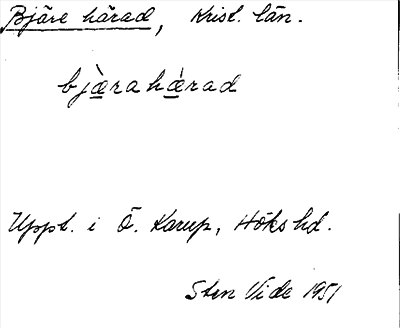 Bjäre härad, Krist. län.
bjæ̀rahǽrad
Uppt. i Ö. Karup, Höks hd.
Sten Vide 1951